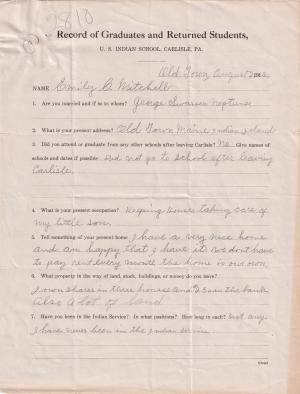 2810
Record of Graduates and Returned Students,
U. S. INDIAN SCHOOL, CARLISLE, PA.
Old Town August
NAME Emily C. Mitchell
1. Are you married and if so to whom? George Swassin neptune
2. What is your present address? Old Town Maine, Indian Island
3. Did you attend or graduate from any other schools after leaving Carlisle? No. Give names of
schools and dates if possible. Did not go to school after leaving
Carlisle.
4. What is your present occupation? Keeping House, taking care of
my little son.
5. Tell something of your present home. I have a very nice home
and am happy that I have it. Not dont have
to pay rent every month the home is our own.
6. What property in the way of land, stock, buildings, or money do you have?
I own shares on three houses and in the bank
also a lot of land
7. Have you been in the Indian Service? In what positions? How long in each? Not any.
I have never been in the Indian service.
(Over)